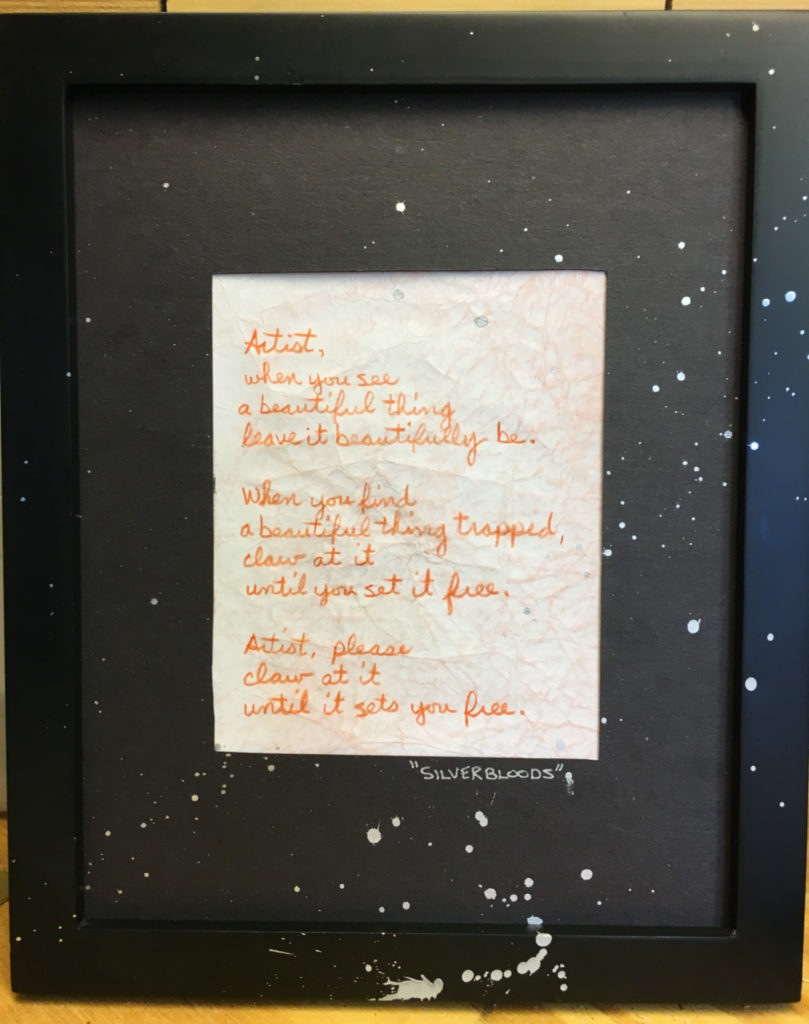 Artist,
when you see
a beautiful thing
leave it beautifully be.
When you find
a beautiful thing trapped,
claw at it
until you set it free.
Artist, please
claw at it
until it sets you free.
"SILVERBLOODS"